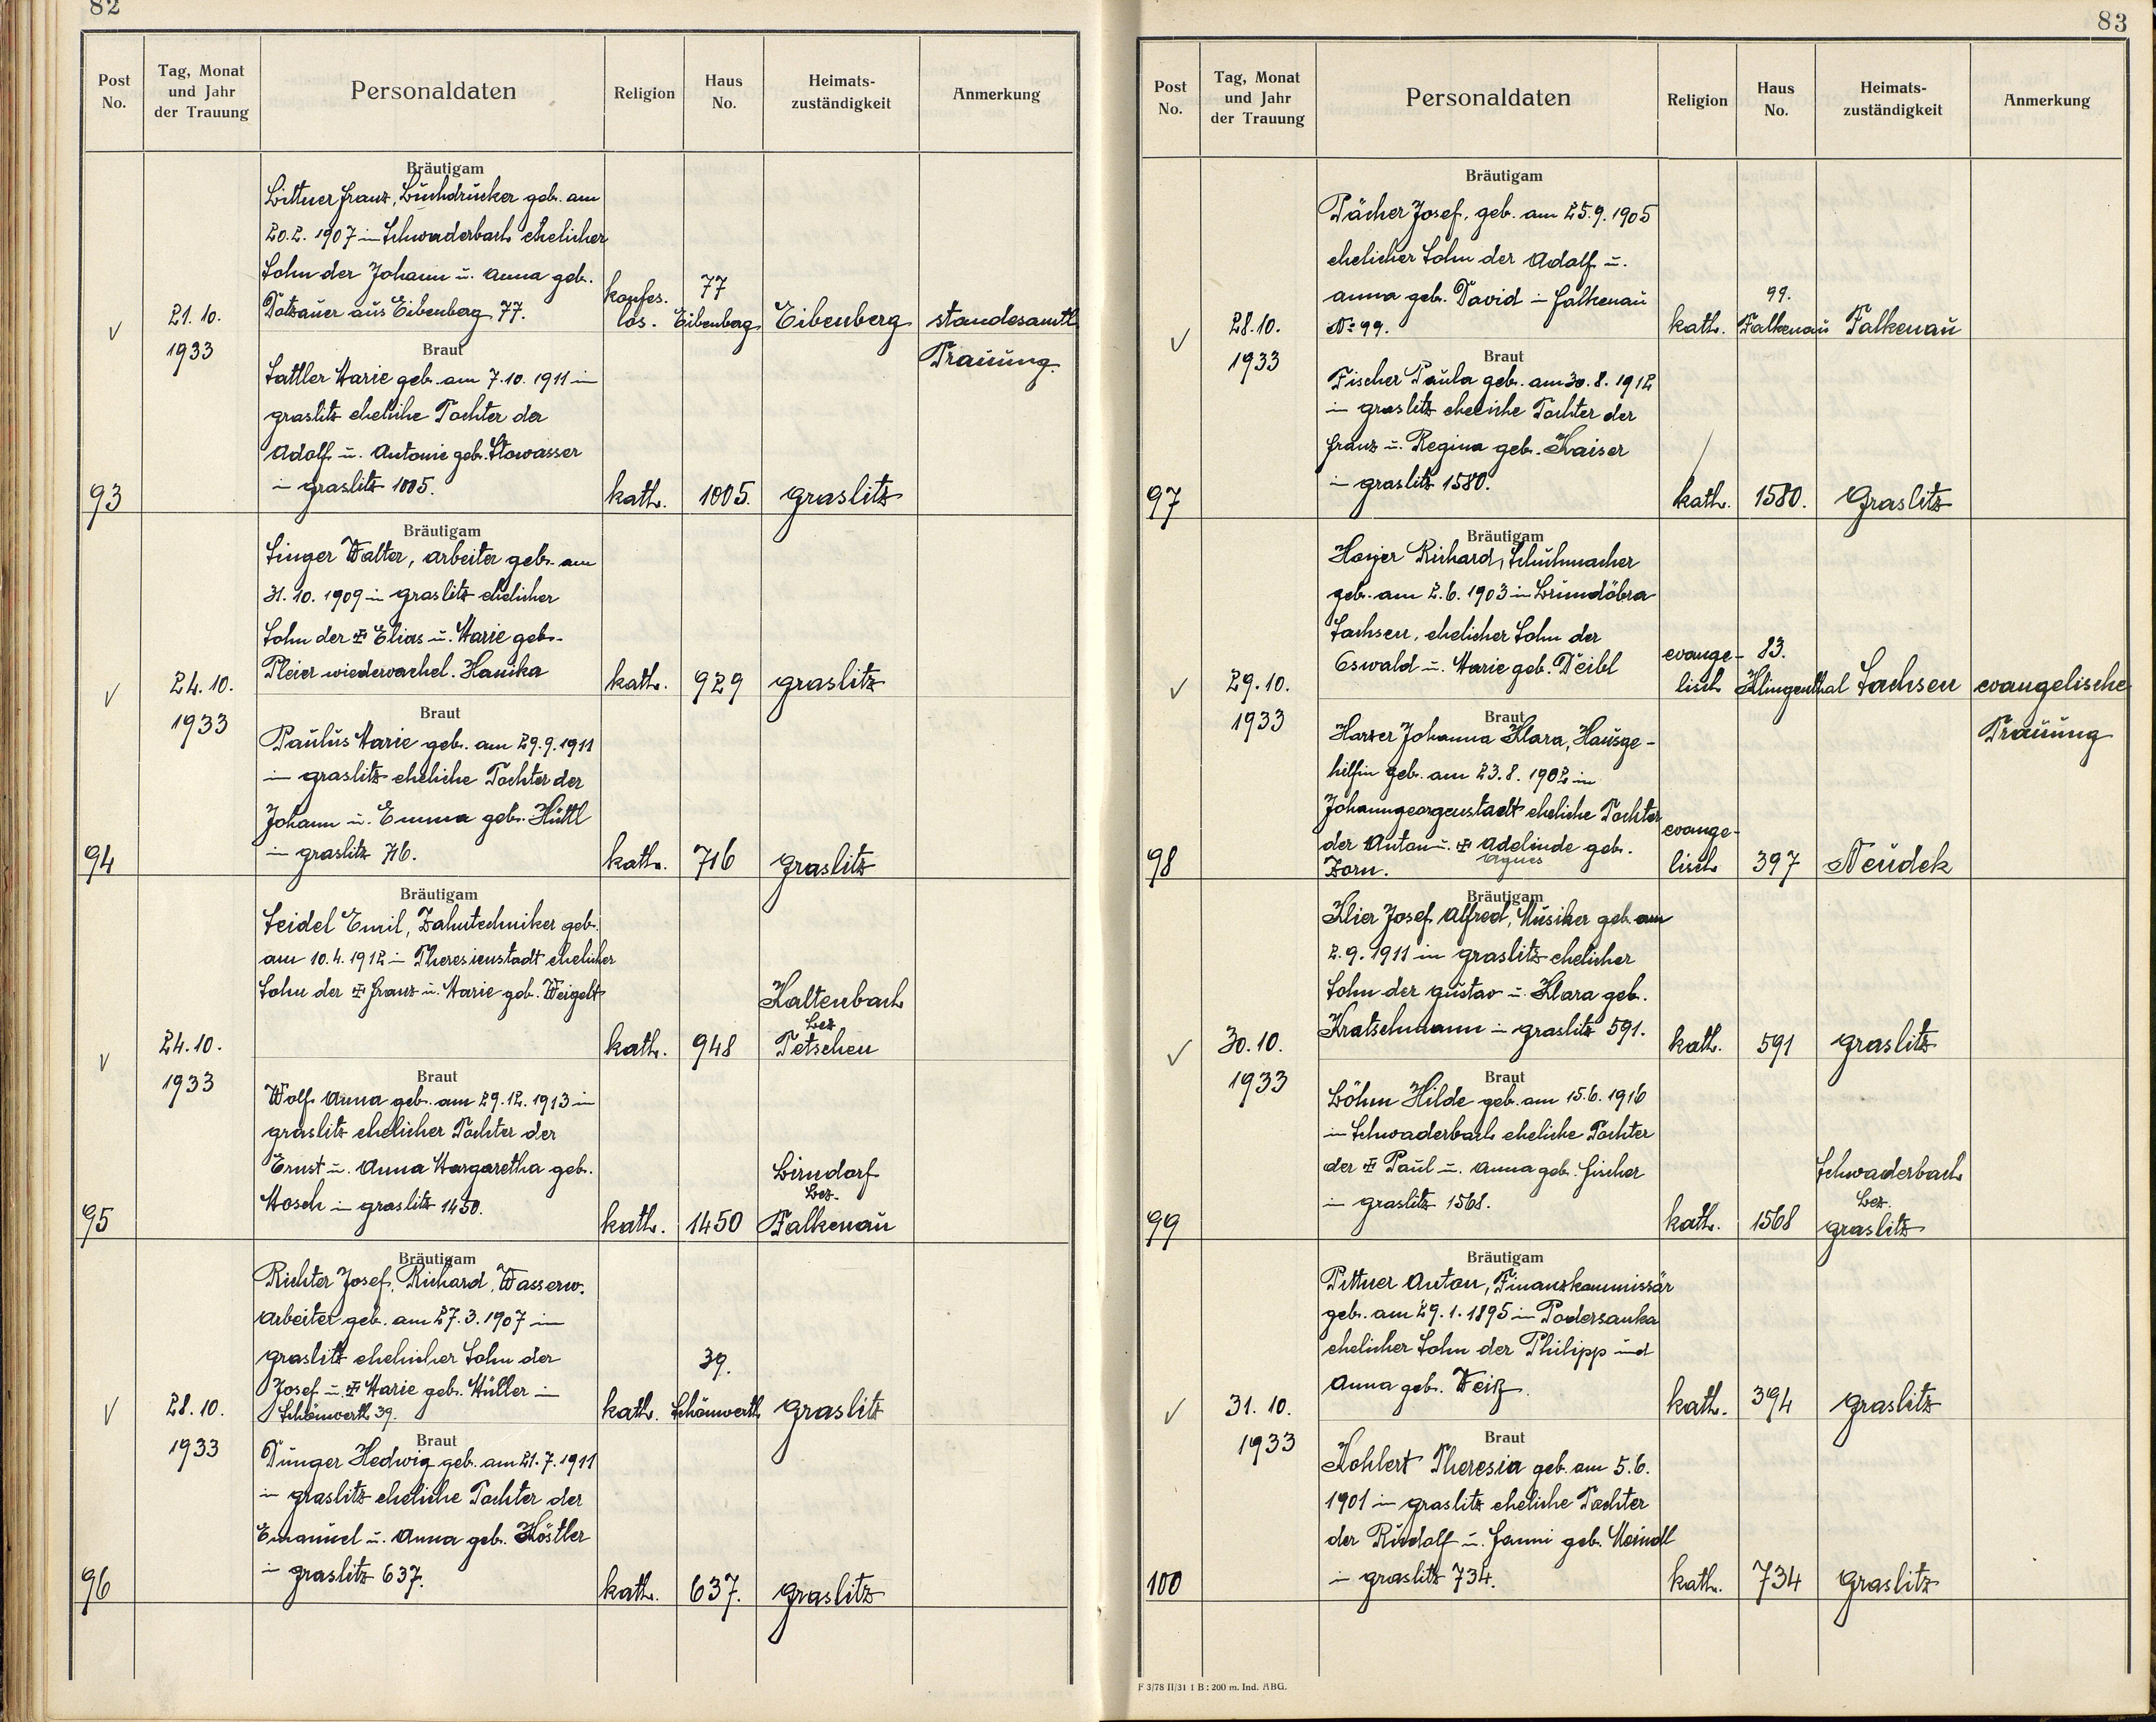 82
Post No.
Tag, Monat und Jahr der Trauung
Personaldaten
Religion
Haus No.
Heimats-zuständigkeit
Anmerkung
Bräutigam
Bittner Franz, Buchdrucker geb. am
20.2.1907 in Schwaderbach ehelicher
Sohn der Johann u. Anna geb.
Dotzauer aus Eibenberg 77.
konfes.
los.
77
Eibenberg
Eibenberg
standesamtl.
Trauung.
21.10.
1933
Braut
Sattler Marie geb. am 7.10.1911 in
Graslitz eheliche Tochter der
Adolf u. Antonie geb. Stowasser
in Graslitz 1005.
93
kath.
1005.
Graslitz
Bräutigam
Singer Walter, Arbeiter geb. am
31.10.1909 in Graslitz ehelicher
Sohn der Elias u. Marie geb.
Pleier wiederverehel. Hanika
kath.
929
Graslitz
24.10.
1933
Braut
Paulus Marie geb. am 29.9.1911
in Graslitz eheliche Tochter der
Johann u. Emma geb. Hüttl
in Graslitz 716.
94
kath.
716
Graslitz
Bräutigam
Seidel Emil, Zahntechniker geb.
am 10.4.1912 in Theresienstadt ehelicher
Sohn der Franz u. Marie geb. Weigelt
kath.
948
Kaltenbach
Bez
Tetschen
24.10.
1933
Braut
Wolf Anna geb. am 29.12.1913 in
Graslitz ehelicher Tochter der
Ernst u. Anna Margaretha geb.
Mosch in Graslitz 1450.
95
kath.
1450
Birndorf
Bez.
Falkenau
Bräutigam
Richter Josef, Richard, Wasserw.
Arbeiter geb. am 27.3.1907 in
Graslitz ehelicher Sohn der
Josef u. Marie geb. Müller in
Schönwerth 39.
kath.
39.
Schönwerth
Graslitz
28.10.
1933
Braut
Dunger Hedwig geb. am 21.7.1911
in Graslitz eheliche Tochter der
Emanuel u. Anna geb. Köstler
in Graslitz 637.
96
kath.
637.
Graslitz
83
Post No.
Tag, Monat und Jahr der Trauung
Personaldaten
Religion
Haus No.
Heimats-zuständigkeit
Anmerkung
Bräutigam
Pächer Josef, geb. am 25.9.1905
ehelicher Sohn der Adolf u.
Anna geb. David in Falkenau
No 99.
kath.
99.
Falkenau
Falkenau
28.10.
1933
Braut
Fischer Paula geb. am 30.8.1912
in Graslitz eheliche Tochter der
Franz u. Regina geb. Kaiser
in Graslitz 1580.
97
kath.
1580.
Graslitz
Bräutigam
Hoyer Richard, Schuhmacher
geb. am 2.6.1903 in Brundöbra
Sachsen, ehelicher Sohn der
Oswald u. Marie geb. Deibl
evange-
lisch
83.
Klingenthal
Sachsen
evangelische
Trauung
29.10.
1933
Braut
Harzer Johanna Klara, Hausge-
hilfin geb. am 23.8.1902 in
Johanngeorgenstadt eheliche Tochter
der Anton u. Adelinde geb.
Agnes
Zorn.
98
evange-
lisch
397
Neudek
Bräutigam
Klier Josef Alfred, Musiker geb. am
2.9.1911 in Graslitz ehelicher
Sohn der Gustav u. Klara geb.
Kratschmann in Graslitz 591.
kath.
591
Graslitz
30.10.
1933
Braut
Böhm Hilde geb. am 15.6.1916
in Schwaderbach eheliche Tochter
der Paul u. Anna geb. Fischer
in Graslitz 1568.
99
kath.
1568
Schwaderbach
Bez.
Graslitz
Bräutigam
Pittner Anton, Finanzkommissär
geb. am 29.1.1895 in Podersanka
ehelicher Sohn der Philipp und
Anna geb. Weiß.
kath.
394
Graslitz
31.10.
1933
Braut
Kohlert Theresia geb. am 5.6.
1901 in Graslitz eheliche Tochter
der Rudolf u. Fanni geb. Meindl
in Graslitz 734.
100
kath.
734
Graslitz
F 3/78 II/31 1 B : 200 m. Ind. ABG.